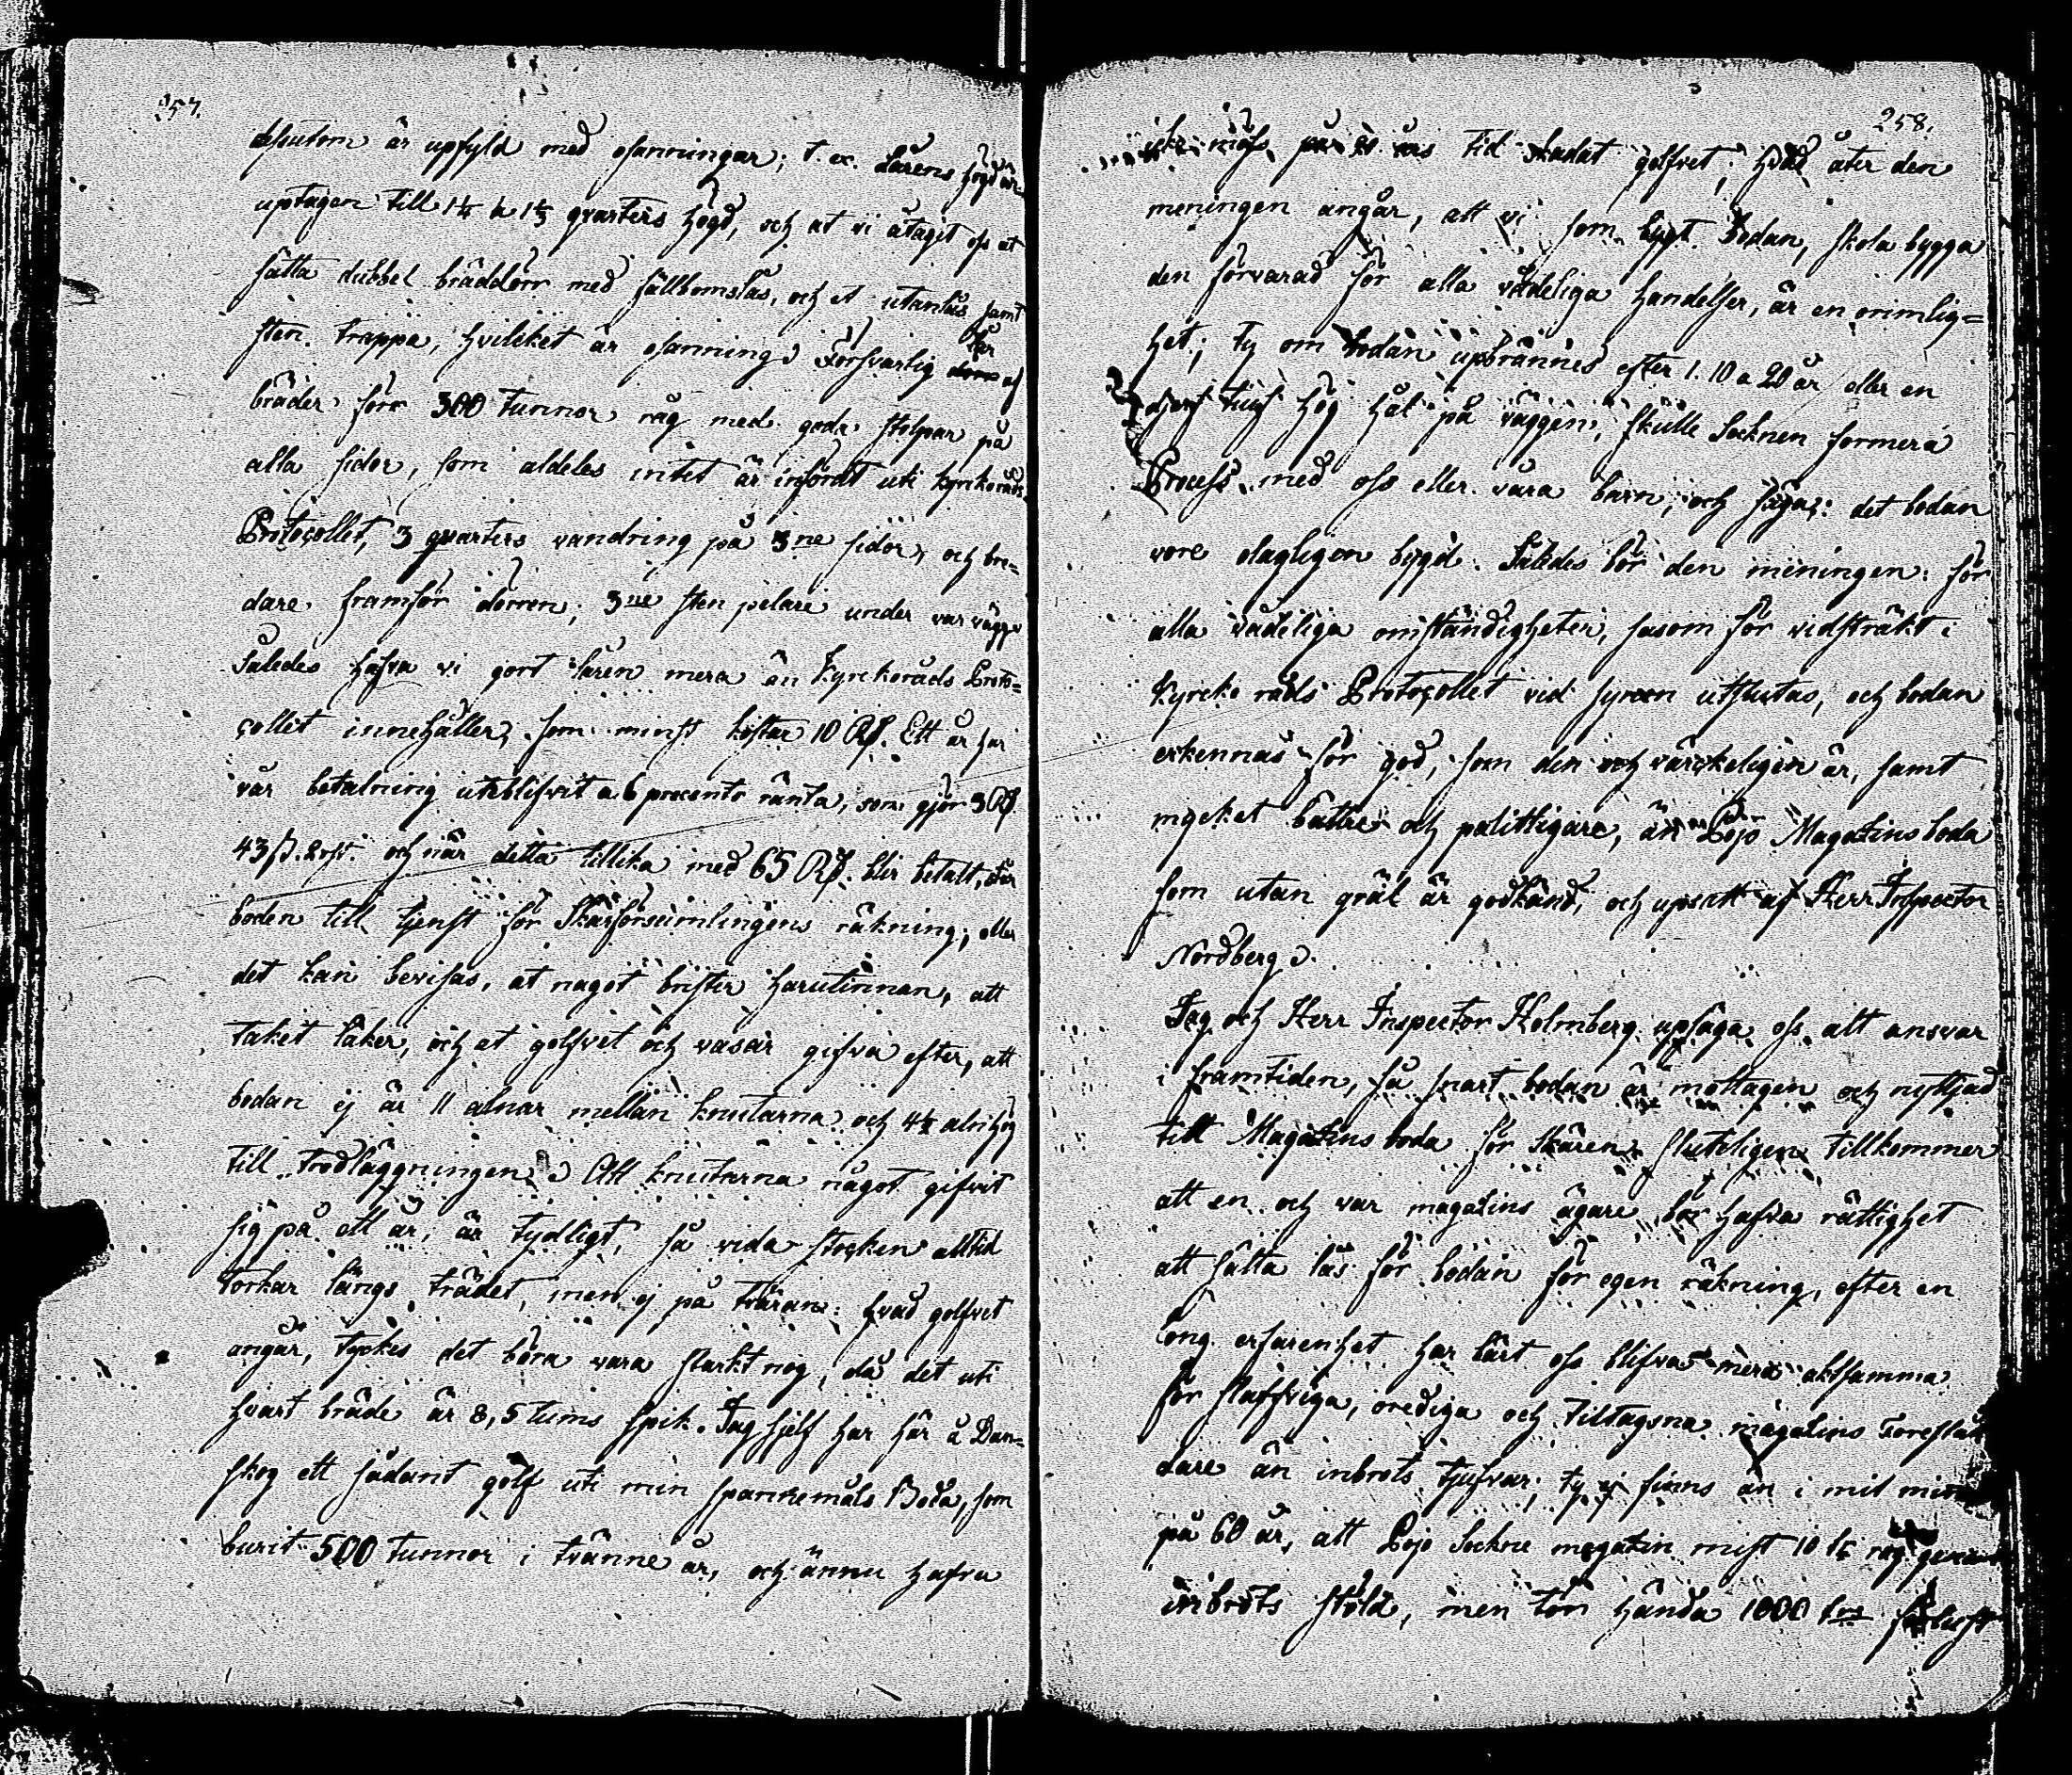 257.
dessutom är upfyld med osanningar; t. ex. Lärens högd är
uptagen till 1¼ a 1½ qvarters högd, och at vi åtagit oss at
sätta dubbel bräddörr med fällbomslås, och et utanlås samt
sten trappa, hvilcket är osanning. Försvarlig lår af
bräder för 300 tunnor råg med goda stolpar på
alla sidor, som aldeles intet är infördt uti Kyrkoråds
Protocollet, 3 qvarters vandring på 3ne sidor, och bre=
dare framför dörren; 3ne sten pelare under var vägg.
Således hafva vi gort laren mera än Kyrckoråds Proto=
collet innehåller, som minst kostar 10 Rd. Ett år har
vår betalning uteblifvit a 6 procents ränta, som gjör 3 Rd
43 s. och när detta tillika med 65 Rd. blir betalt, står
boden till tjenst för Skärsförsamlingens räkning; eller
det kan bevisas, at något brister harutinnan, att
taket läker, och at golfvet och vasar gifva efter, att
bodan ej är 11 alnar mellan knutarna och 4½ aln hög
till trodläggningen. Att knutarna något gifvit
sig på ett år, är tydligt, så vida stocken alltid
torkar längs trädet, men ej på tväran: hvad golfvet
angår, tyckes det böra vara starkt nog, då det uti
hvart bräde är 8, 5 tums spik. Jag sjelf har här å Dan=
skog ett sådant golf uti min spannemåls Boda, som
burit 500 tunnor i tvänne år, och ännu hafva
258.
tid skadat golfvet; hvad åter den
meningen angår, att vi som bygt bodan, skola bygga
den förvarad för alla vådeliga händelser, är en orimlig=
het; ty om bodan upbrännes efter 1. 10 a 20 år eller en
djerf tiuf hög hål på väggen, skulle Socknen formera
Process med oss eller våra barn, och säga: det bodan
vore olagligen bygd. Således bör den meningen: för
alla vådeliga omständigheter, såsom för vidsträkt i
Kyrcko råds Protocollet vid synen utslutas, och bodan
erkennas för god, som den och värckeligen är, samt
mycket bättre och palitligare, än Pojo Magatins boda
som utan gräl är godkänd, och upsatt af Herr Inspector
Nordberg.
Jag och Herr Inspector Holmberg upsäga oss att ansvar
i framtiden, så snart bodan är mottagen och nyttjad
till Magatins boda för skären. Slutligen tillkommer
att en och var magatins ägare bör hafva rättighet
att sätta lås för bodan för egen räkning, efter en
long erfarenhet har lärt oss blifva mera aktsamma
för slafsviga, orediga och tiltagsna magatins Förestån
dare än inbrots tjufvar; ty ej finns än i mit min
på 60 år, att Pojo Sockne magatin mist 10 råg genom
inbrots stöld, men tör hända 1000 förlust